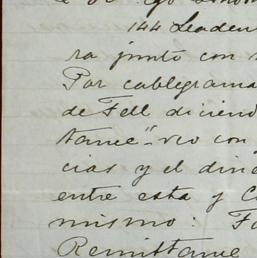 144 Leaden
ra junto con
Por cablegrama
de Fell diciend
tance" veo con
cias y el dine
entre esta y C
mismo: Fe
Remittance